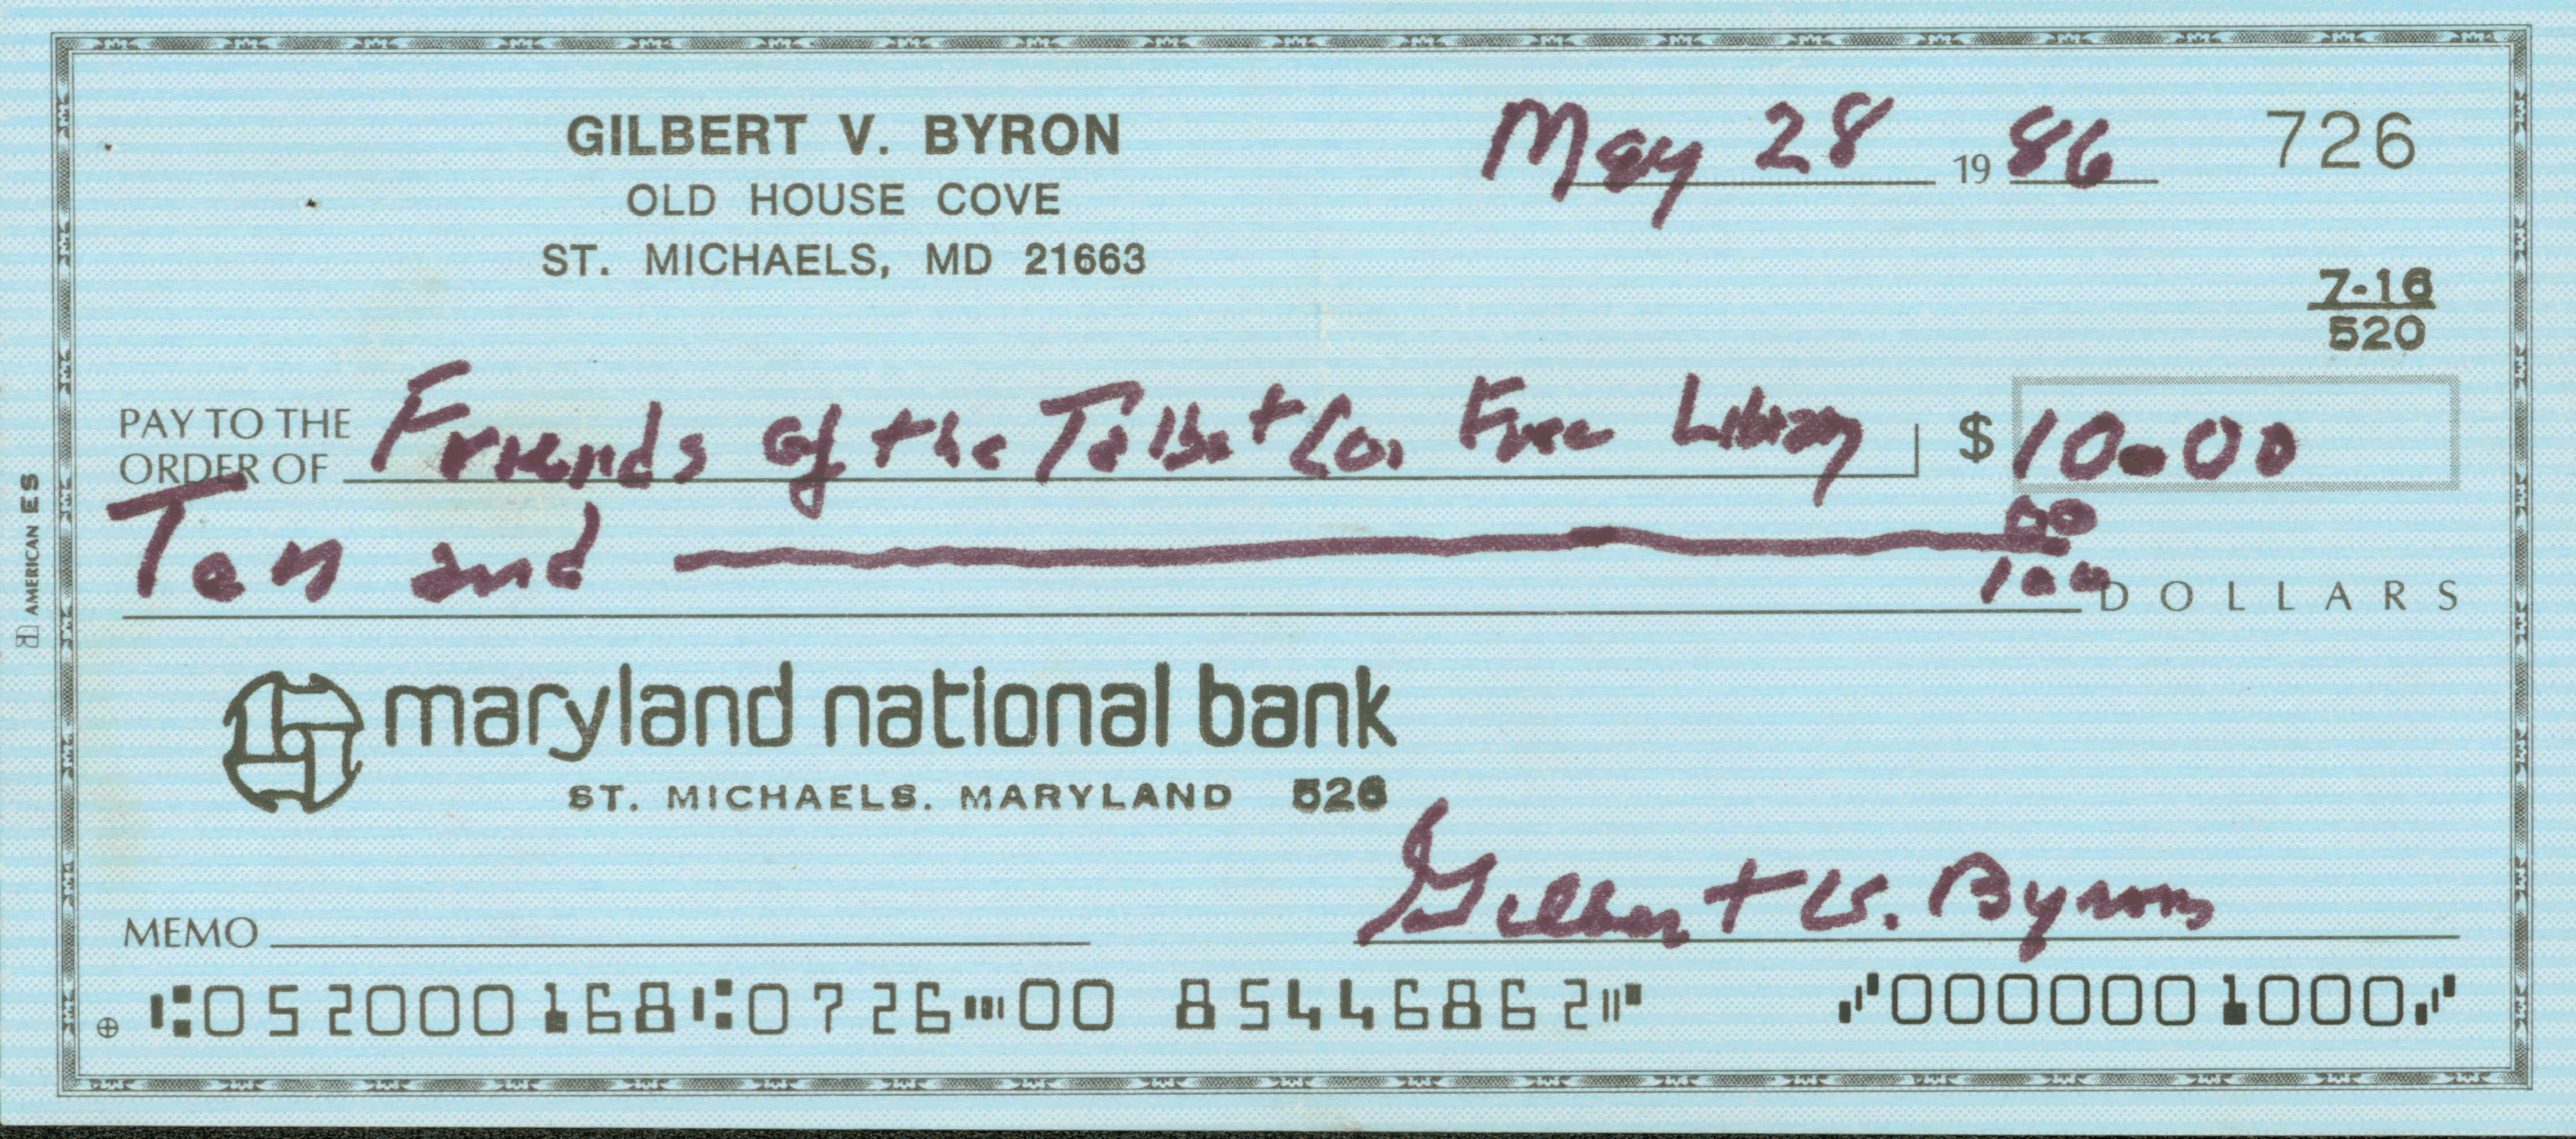 GILBERT V. BYRON
OLD HOUSE COVE
ST. MICHAELS, MD 21663
May 28 19 86 726
7-16
520
PAY TO THE
ORDER OF Friends of the Talbot Co. Free Library $ 10.00
Ten and 00
100 DOLLARS
maryland national bank
ST. MICHAELS. MARYLAND 526
MEMO Gilbert V. Byron
⑆052000168⑆0726⑈00 85446862⑈ ⑇0000001000⑇
AMERICAN ES